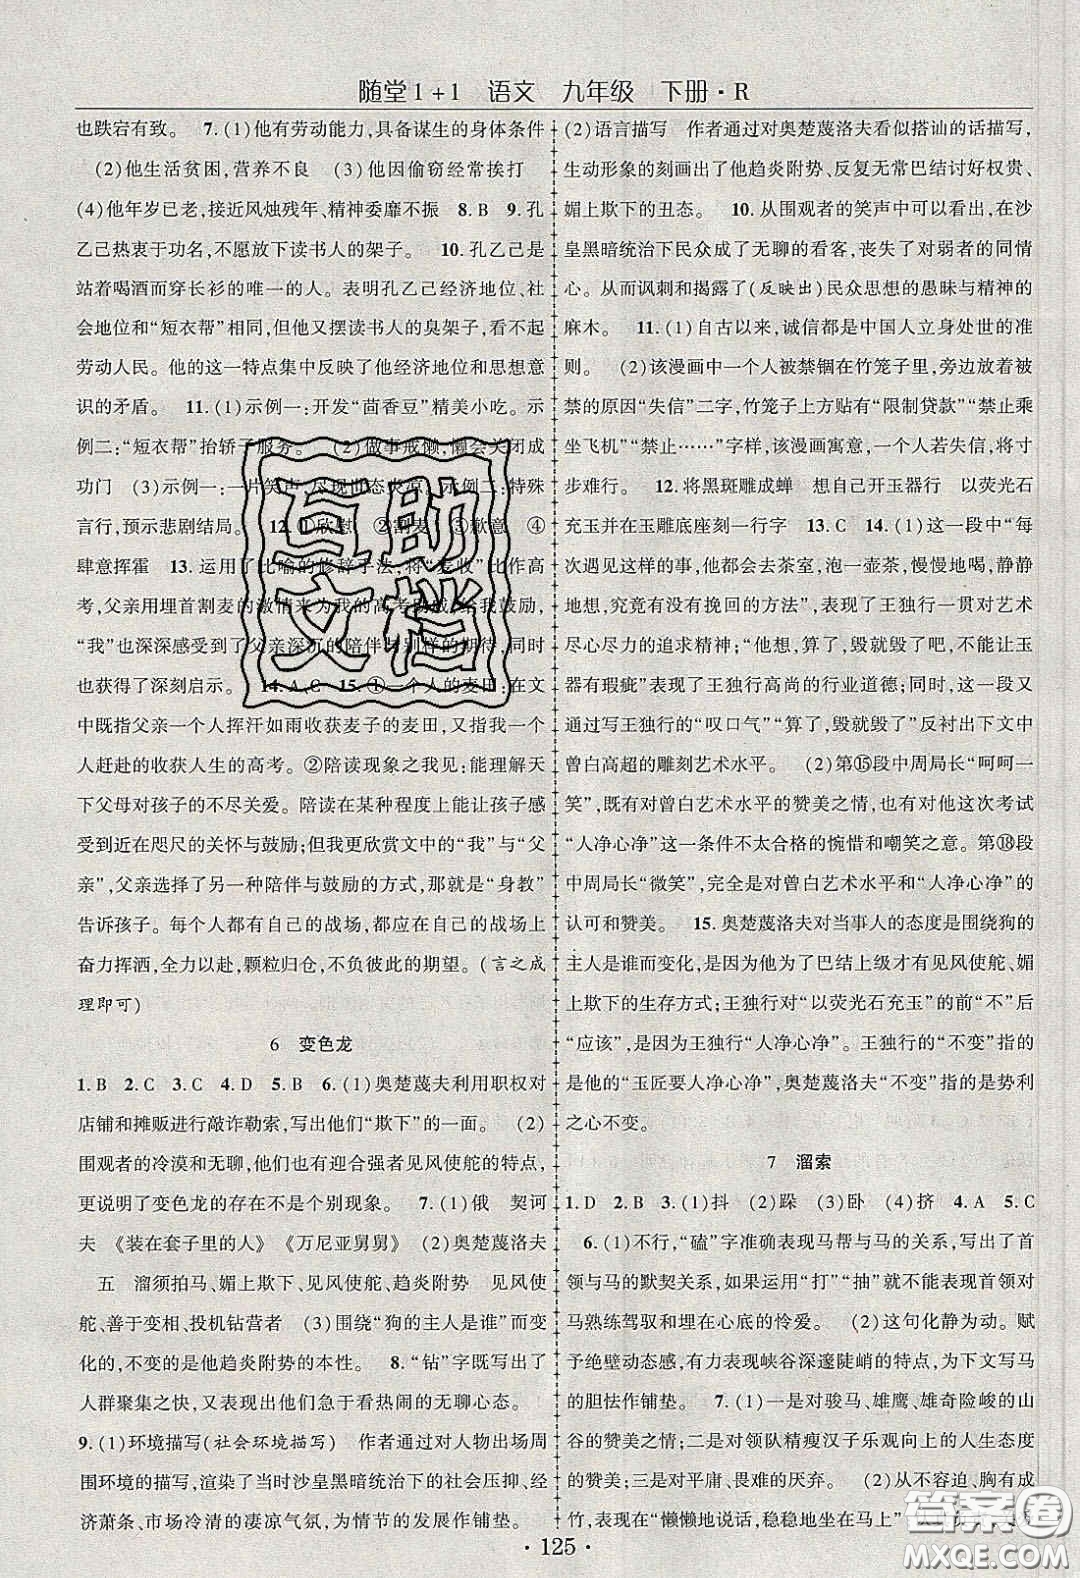 随堂1+1 语文 九年级 下册·R
也跌宕有致。 7.(1)他有劳动能力,具备谋生的身体条件
(2)他生活贫困,营养不良 (3)他因偷窃经常挨打
(4)他年岁已老,接近风烛残年、精神委靡不振 8.B 9.孔
乙己热衷于功名,不愿放下读书人的架子。 10.孔乙己是
站着喝酒而穿长衫的唯一的人。表明孔乙己经济地位、社
会地位和“短衣帮”相同,但他又摆读书人的臭架子,鄙视
劳动人民。他的这一特点集中反映了他经济地位和思想意
识的矛盾。 11.(1)示例一:开发“茴香豆”精美小吃。示
例二:“短衣帮”抬轿子服务。 (2)做事戒懒,懒会关闭成
功门 (3)示例一:一片笑声,尽现世态炎凉。示例二:特殊
言行,预示悲剧结局。 12.①欣慰 ②割麦 ③歉意 ④
肆意挥霍 13.运用了比喻的修辞手法,将“麦收”比作高
考,父亲用埋首割麦的激情来为我的高考助威,给我鼓励,
“我”也深深感受到了父亲深沉的陪伴与别样的期待,同时
也获得了深刻启示。 14.A C 15.①一个人的麦田:在文
中既指父亲一个人挥汗如雨收获麦子的麦田,又指我一个
人赶赴的收获人生的高考。②陪读现象之我见:能理解天
下父母对孩子的不尽关爱。陪读在某种程度上能让孩子感
受到近在咫尺的关怀与鼓励;但我更欣赏文中的“我”与“父
亲”,父亲选择了另一种陪伴与鼓励的方式,那就是“身教”
告诉孩子。每个人都有自己的战场,都应在自己的战场上
奋力挥洒,全力以赴,颗粒归仓,不负彼此的期望。(言之成
理即可)
6 变色龙
1.B 2.C 3.C 4.D 5.B 6.(1)奥楚蔑夫利用职权对
店铺和摊贩进行敲诈勒索,写出他们“欺下”的一面。 (2)
围观者的冷漠和无聊,他们也有迎合强者见风使舵的特点,
更说明了变色龙的存在不是个别现象。 7.(1)俄 契诃
夫 《装在套子里的人》《万尼亚舅舅》 (2)奥楚蔑洛夫
五 溜须拍马、媚上欺下、见风使舵、趋炎附势 见风使
舵、善于变相、投机钻营者 (3)围绕“狗的主人是谁”而变
化的,不变的是他趋炎附势的本性。 8.“钻”字既写出了
人群聚集之快,又表现出当时看热闹的无聊心态。
9.(1)环境描写(社会环境描写) 作者通过对人物出场周
围环境的描写,渲染了当时沙皇黑暗统治下的社会压抑、经
济萧条、市场冷清的凄凉气氛,为情节的发展作铺垫。
(2)语言描写 作者通过对奥楚蔑洛夫看似搭讪的话描写,
生动形象的刻画出了他趋炎附势、反复无常巴结讨好权贵、
媚上欺下的丑态。 10.从围观者的笑声中可以看出,在沙
皇黑暗统治下民众成了无聊的看客,丧失了对弱者的同情
心。从而讽刺和揭露了(反映出)民众思想的愚昧与精神的
麻木。 11.(1)自古以来,诚信都是中国人立身处世的准
则。 (2)该漫画中一个人被禁锢在竹笼子里,旁边放着被
禁的原因“失信”二字,竹笼子上方贴有“限制贷款”“禁止乘
坐飞机”“禁止……”字样,该漫画寓意,一个人若失信,将寸
步难行。 12.将黑斑雕成蝉 想自己开玉器行 以荧光石
充玉并在玉雕底座刻一行字 13.C 14.(1)这一段中“每
次遇见这样的事情,他都会去茶室,泡一壶茶,慢慢地喝,静静
地想,究竟有没有挽回的方法”,表现了王独行一贯对艺术
尽心尽力的追求精神;“他想,算了,毁就毁了吧,不能让玉
器有瑕疵”表现了王独行高尚的行业道德;同时,这一段又
通过写王独行的“叹口气”“算了,毁就毁了”反衬出下文中
曾白高超的雕刻艺术水平。 (2)第⑮段中周局长“呵呵一
笑”,既有对曾白艺术水平的赞美之情,也有对他这次考试
“人净心净”这一条件不太合格的惋惜和嘲笑之意。第⑱段
中周局长“微笑”,就完全是对曾白艺术水平和“人净心净”的
认可和赞美。 15.奥楚蔑洛夫对当事人的态度是围绕狗的
主人是谁而变化,是因为他为了巴结上级才有见风使舵、媚
上欺下的生存方式;王独行对“以荧光石充玉”的前“不”后
“应该”,是因为王独行对“人净心净”。王独行的“不变”指的
是他的“玉匠要人净心净”,奥楚蔑洛夫“不变”指的是势利
之心不变。
7 溜索
1.D 2.B 3.(1)抖 (2)跺 (3)卧 (4)挤 4.A 5.C
6.(1)不行,“磕”字准确表现马帮与马的关系,写出了首
领与马的默契关系,如果运用“打”“抽”就不能表现首领对
马熟练驾驭和埋在心底的怜爱。 (2)这句化静为动。赋
予绝壁动态感,有力表现峡谷深邃陡峭的特点,为下文写马
的胆怯作铺垫。 7.(1)一是对骏马、雄鹰、雄奇险峻的山
谷的赞美之情;二是对领队精瘦汉子乐观向上的人生态度
的赞美;三是对平庸、畏难的厌弃。 (2)从不容迫、胸有成
竹,表现在“懒懒地说话,稳稳地坐在马上”
·125·
互助
文档
答案圈
MXQE.COM